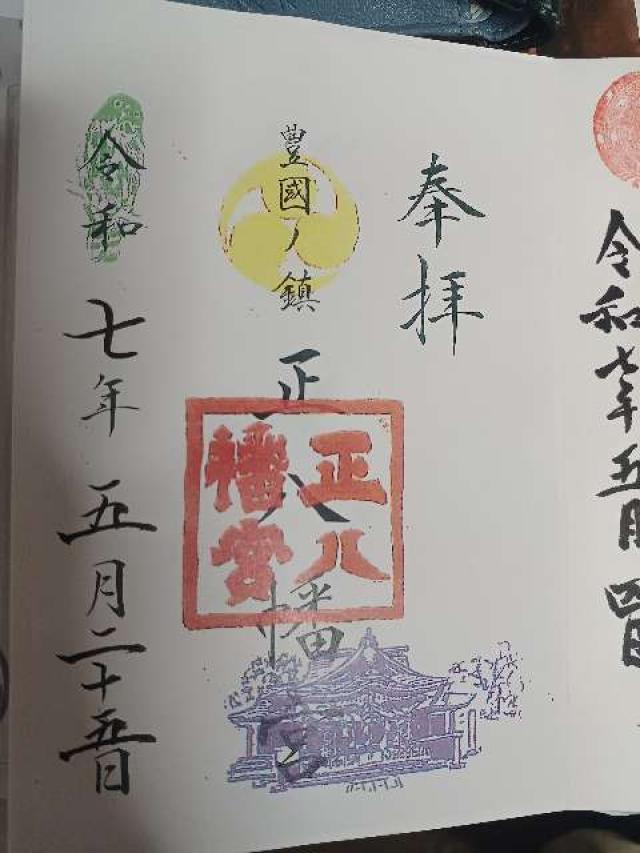 奉拝
豊國ノ鎮
正八幡宮
正八
幡宮
令和七年五月二十五日
令和七年五月四日